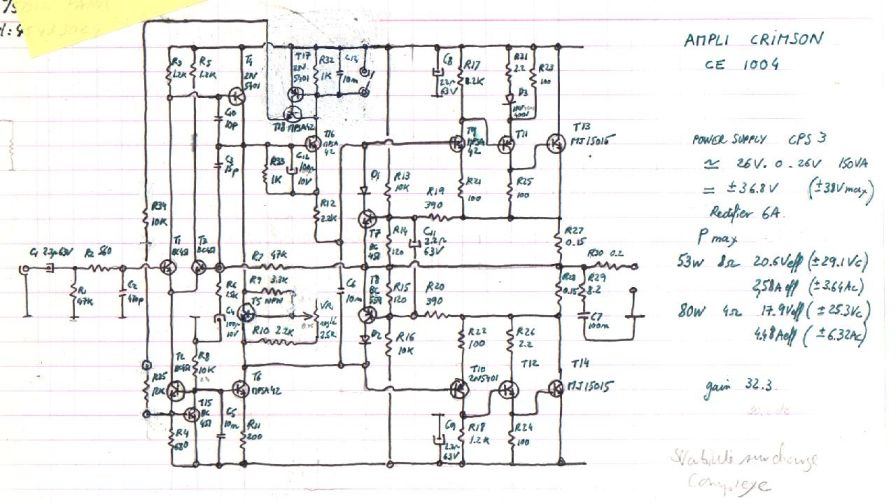 AMPLI CRIMSON
CE 1004
POWER SUPPLY CPS 3
≃ 26V. 0. 26V 150VA
= ± 36.8V (±38Vmax)
Rectifier 6A
P max
53W 8Ω 20.6Veff (±29.1Vc)
2,58Aeff (±3.64Ac)
80W 4Ω 17.9Veff (±25.3Vc)
4.48Aeff (±6.32Ac)
gain 32.3
Stabilité sur charge
Complexe
R3
1.2K
R5
1.2K
T4
2N
5401
T17
2N
5401
R32
1K
10m
C8
63V
R17
R21
2.2
R23
100
D3
C10
10p
T18 MPSA42
T16
MPSA
42
T9
MPSA
42
T11
T13
MJ15016
C3
R33
1K
C12
100m
10V
D1
R13
10K
R19
390
R21
100
R25
100
R34
10K
R12
2.2K
T7
BC
R14
120
C11
2.2m
63V
R27
0.15
C1 63V
R2 560
T1
BC451
T3
R7 47K
R9 3.3K
R30 0.2
R1
47K
C2
470p
R6
C4
100m
10V
T5 NPN
VR1
C6
10m
T8
BC
R15
120
R20
390
R28
0.15
R29
8.2
R10 2.2K
25K
C7
100m
D2
R16
10K
R22
100
R26
2.2
T2
R8
10K
T6
MPSA42
T10
2N5401
T12
T14
MJ15015
R35
T15
BC
451
C5
10m
R11
200
R4
680
C9
63V
R18
1.2K
R24
100